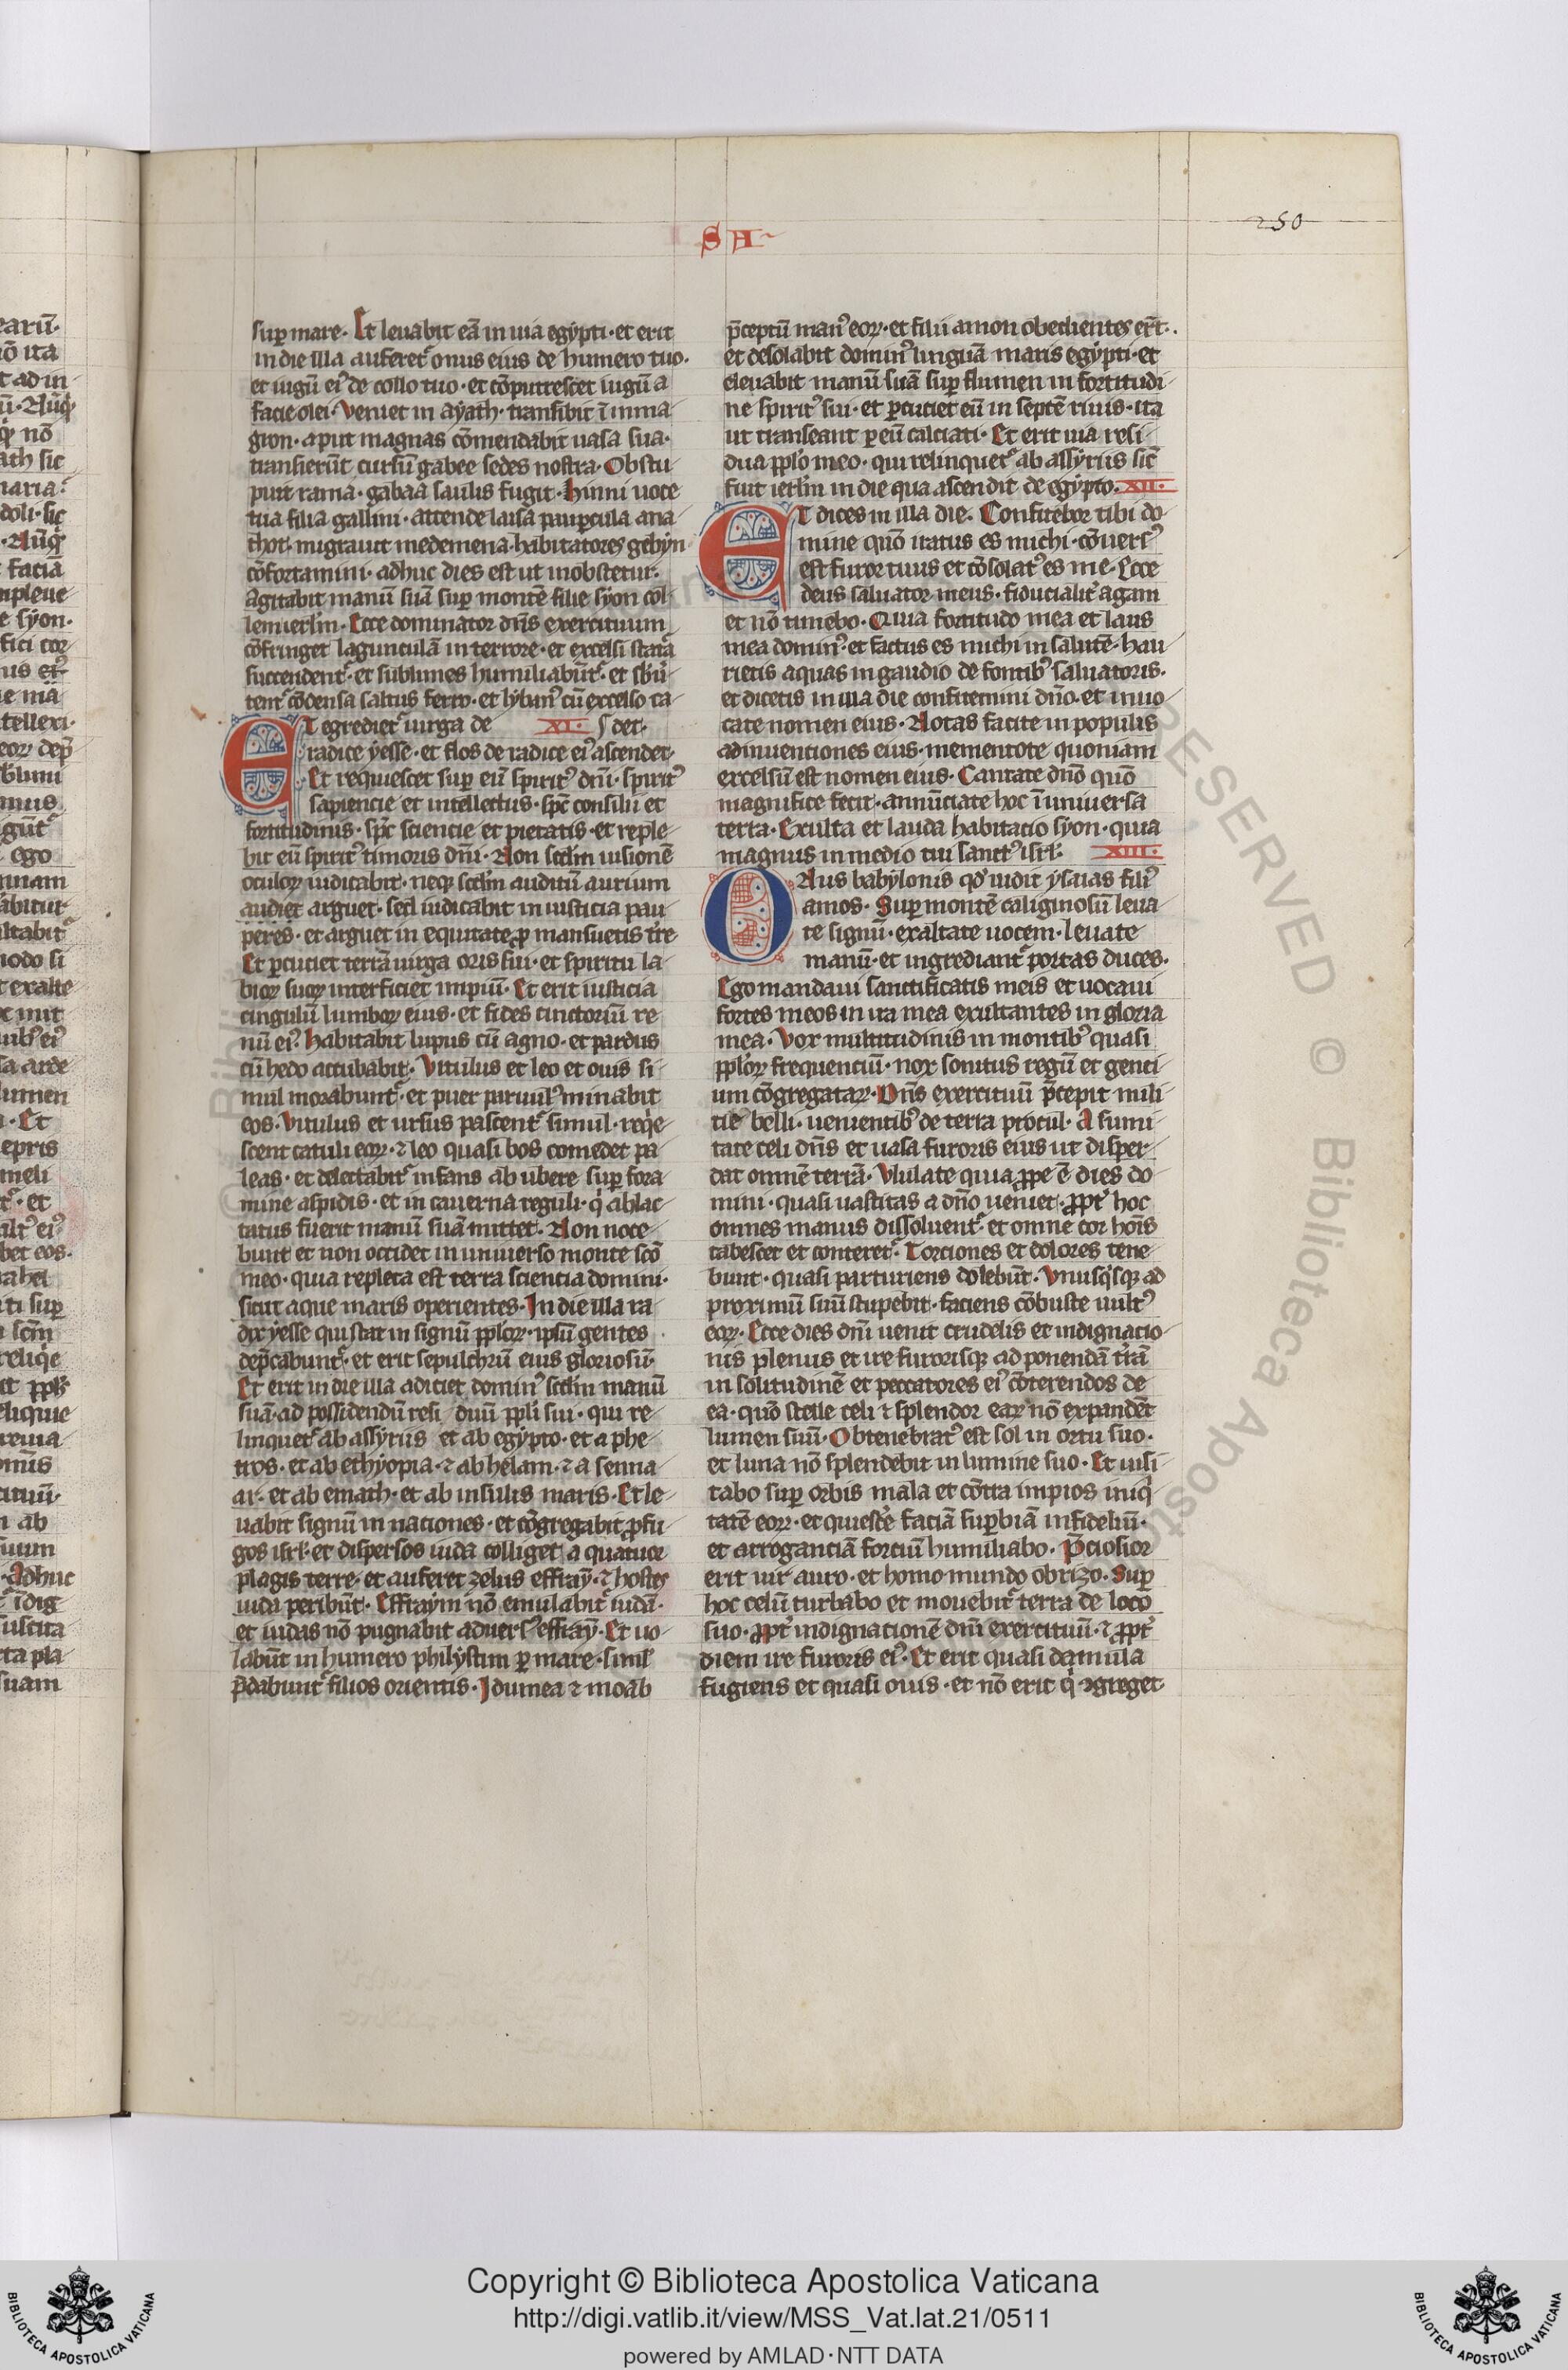 SA
250
sup mare. Et leuabit eā in uia egypti. et erit
in die illa auferet᷑ onus eius de humero tuo.
et iugū ei᷒ de collo tuo. et cōputrescet iugū a
facie olei. Veniet in ayath. transibit ī in ma
gron. aput magnas cōmendabit uasa sua.
transierūt cursū gabee sedes nostra. Obstu
puit rama. gabaa saulis fugit. Hinni uoce
tua filia gallim. attende laisa paupcula ana
thot. migrauit medemena. habitatores gebyn
cōfortamini. adhuc dies est ut in obstetur.
Agitabit manū suā sup montē filie syon col
lem ierlm̄. Ecce dominator dn̄s exercituum
cōfringet lagunculā in terrore. et excelsi statᵃ
succendent᷑. et sublimes humiliabūt᷑. et sbū
tent᷑ cōdensa saltus ferro. et lyban᷒ cū excelso ca
det.
ET egrediet᷑ uirga de XI.
radice yesse. et flos de radice ei᷒ ascendet.
Et requiescet sup eū spirit᷒ dn̄i. spirit᷒
sapiencie et intellectus. spc̄ consilii et
fortitudinis. spc̄ sciencie et pietatis. et reple
bit eū spirit᷒ timoris dn̄i. Non scdm̄ uisionē
oculoꝝ iudicabit. neqꝫ scdm̄ auditū aurium
audiet arguet. sed iudicabit in iusticia pau
peres. et arguet in equitate ꝓ mansuetis tr̄e
Et ꝑcutiet terrā uirga oris sui. et spiritu la
bioꝝ suoꝝ interficiet impiū. Et erit iusticia
cingulū lumboꝝ eius. et fides cinctoriū re
nū ei᷒. Habitabit lupus cū agno. et pardus
cū hedo accubabit. Vitulus et leo et ouis si
mul morabunt᷑. et puer paruul᷒ minabit
eos. Vitulus et ursus pascent᷑ simul. reqⁱe
scent catuli eoꝝ. ⁊ leo quasi bos comedet pa
leas. et delectabit᷑ infans ab ubere sup fora
mine aspidis. et in cauerna reguli. qⁱ ablac
tatus fuerit manū suā mittet. Non noce
bunt et non occidet in uniuerso monte scō
meo. quia repleta est terra scientia domini.
sicut aque maris operientes. In die illa ra
dix yesse qui stat in signū ppl̄oꝝ. ipsū gentes
dep̄cabunt᷑. et erit sepulchrū eius gloriosū.
Et erit in die illa adiciet domin᷒ scdm̄ manū
suā. ad possidendū resi duū ppl̄i sui. qui re
linquet᷑ ab assyriis et ab egypto. et a phe
tros. et ab ethyopia. ⁊ ab helam. ⁊ a senna
ar. et ab emath. et ab insulis maris. Et le
uabit signū in nationes. et cōgregabit ꝓfu
gos isrl̄. et dispersos iuda colliget a quatuor
plagis terre. et auferet zelus effray̅. ⁊ hostes
iuda peribūt. Effraym nō emulabit᷑ iudā.
et iudas nō pugnabit aduers᷒ effray̅. Et uo
labūt in humero philystim ꝑ mare. simlˡ
p̄dabunt᷑ filios orientis. Idumea ⁊ moab
p̄ceptū man᷒ eoꝝ. et filii amon obedientes er̄t.
et desolabit domin᷒ linguā maris egypti. et
eleuabit manū suā sup flumen in fortitudi
ne spirit᷒ sui. et ꝑcutiet eū in septē riuis. ita
ut transeant ꝑ eū calciati. Et erit uia resi
dua ppl̄o meo. qui relinquet᷑ ab assyriis sic̄
fuit ierlm̄ in die qua ascendit de egypto. XII.
ET dices in illa die. Confitebor tibi do
mine quō iratus es michi. cōuers᷒
est furor tuus et cōsolat᷒ es me. Ecce
deus saluator meus. fiducialit᷑ agam
et nō timebo. Quia fortitudo mea et laus
mea domin᷒. et factus es michi in salutē. hau
rietis aquas in gaudio de fontib᷒ saluatoris.
et dicetis in illa die confitemini dn̄o. et inuo
cate nomen eius. Notas facite in populis
adinuentiones eius. mementote quoniam
excelsū est nomen eius. Cantate dn̄o quō
magnifice fecit. annūciate hoc ī uniuersa
terra. Exulta et lauda habitacio syon. quia
magnus in medio tui sanct᷒ isrl̄. XIII.
ONus babylonis qd̄ uidit ysaias fili᷒
amos. Sup montē caliginosū leua
te signū. exaltate uocem. leuate
manū. et ingrediant᷑ portas duces.
Ego mandaui sanctificatis meis et uocaui
fortes meos in ira mea exultantes in gloria
mea. Vox multitudinis in montib᷒ quasi
ppl̄oꝝ frequentiū. uox sonitus regū et genti
um cōgregataꝝ. Dn̄s exercituū p̄cepit mili
tie belli. uenientib᷒ de terra procul. A sumi
tate celi dn̄s et uasa furoris eius ut disper
dat omnē terrā. Vlulate quia ꝓpe ē dies do
mini. quasi uastitas a dn̄o ueniet. ꝓpt᷑ hoc
omnes manus dissoluent᷑. et omne cor hois̄
tabescet et conteret᷑. Torciones et dolores tene
bunt. quasi parturiens dolebūt. Vnusqⁱsqꝫ ad
proximū suū stupebit. facies cōbuste uult᷒
eoꝝ. Ecce dies dn̄i uenit crudelis et indignatio
nis plenus et ire furorisqꝫ ad ponendā tr̄ā
in solitudinē et peccatores ei᷒ cōterendos de
ea. quō stelle celi ⁊ splendor eaꝝ nō expandēt
lumen suū. Obtenebrat᷒ est sol in ortu suo.
et luna nō splendebit in lumine suo. Et uisi
tabo sup orbis mala et cōtra impios iniqⁱ
tatē eoꝝ. et quiescē faciā supbiā infideliū.
et arroganciā forciū humiliabo. P̄ciosior
erit uir auro. et homo mundo obrizo. Sup
hoc celū turbabo et mouebit᷑ terra de loco
suo. ꝓpt᷑ indignationē dn̄i exercituū. ⁊ ꝓpt᷑
diem ire furoris ei᷒. Et erit quasi damula
fugiens et quasi ouis. et nō erit qⁱ ꝯgreget.
Copyright © Biblioteca Apostolica Vaticana
http://digi.vatlib.it/view/MSS_Vat.lat.21/0511
powered by AMLAD·NTT DATA